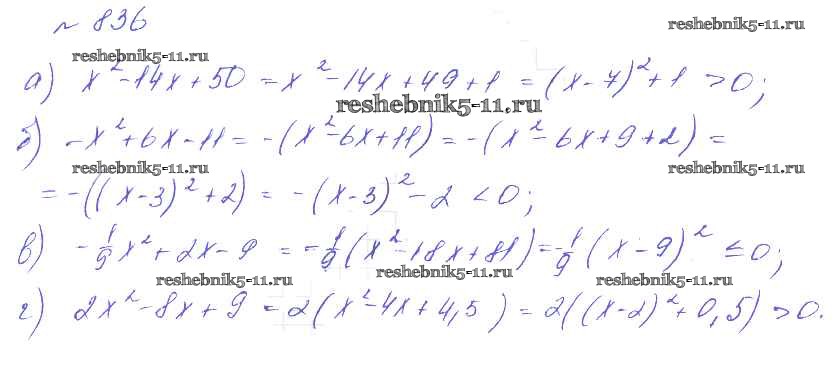 № 836
reshebnik5-11.ru
reshebnik5-11.ru
а) x² - 14x + 50 = x² - 14x + 49 + 1 = (x - 7)² + 1 > 0;
reshebnik5-11.ru
б) -x² + 6x - 11 = -(x² - 6x + 11) = -(x² - 6x + 9 + 2) =
reshebnik5-11.ru
reshebnik5-11.ru
= -((x - 3)² + 2) = -(x - 3)² - 2 < 0;
в) -1/9 x² + 2x - 9 = -1/9 (x² - 18x + 81) = -1/9 (x - 9)² ≤ 0;
reshebnik5-11.ru
reshebnik5-11.ru
reshebnik5-11.ru
г) 2x² - 8x + 9 = 2(x² - 4x + 4,5) = 2((x - 2)² + 0,5) > 0.